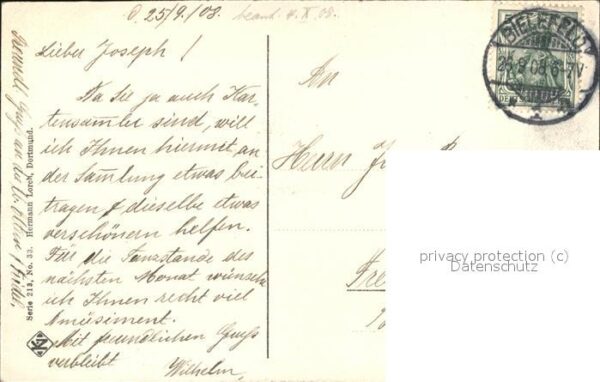 25/9./08.
beant. 4.X.08.
Lieber Joseph!
Da Sie ja auch Kar-
tensammler sind, will
ich Ihnen hiermit an
der Samlung etwas bei-
tragen & dieselbe etwas
verschönern helfen.
Für die Tanzstande des
nächsten Monat wünsche
ich Ihnen recht viel
Amüsiment.
Mit freundlichen Gruß
verbleibt
Wilhelm
An
Herrn
BIELEFELD
25.9.08.6-7V
Serie 213, No. 33. Hermann Lorch, Dortmund.
privacy protection (c)
Datenschutz